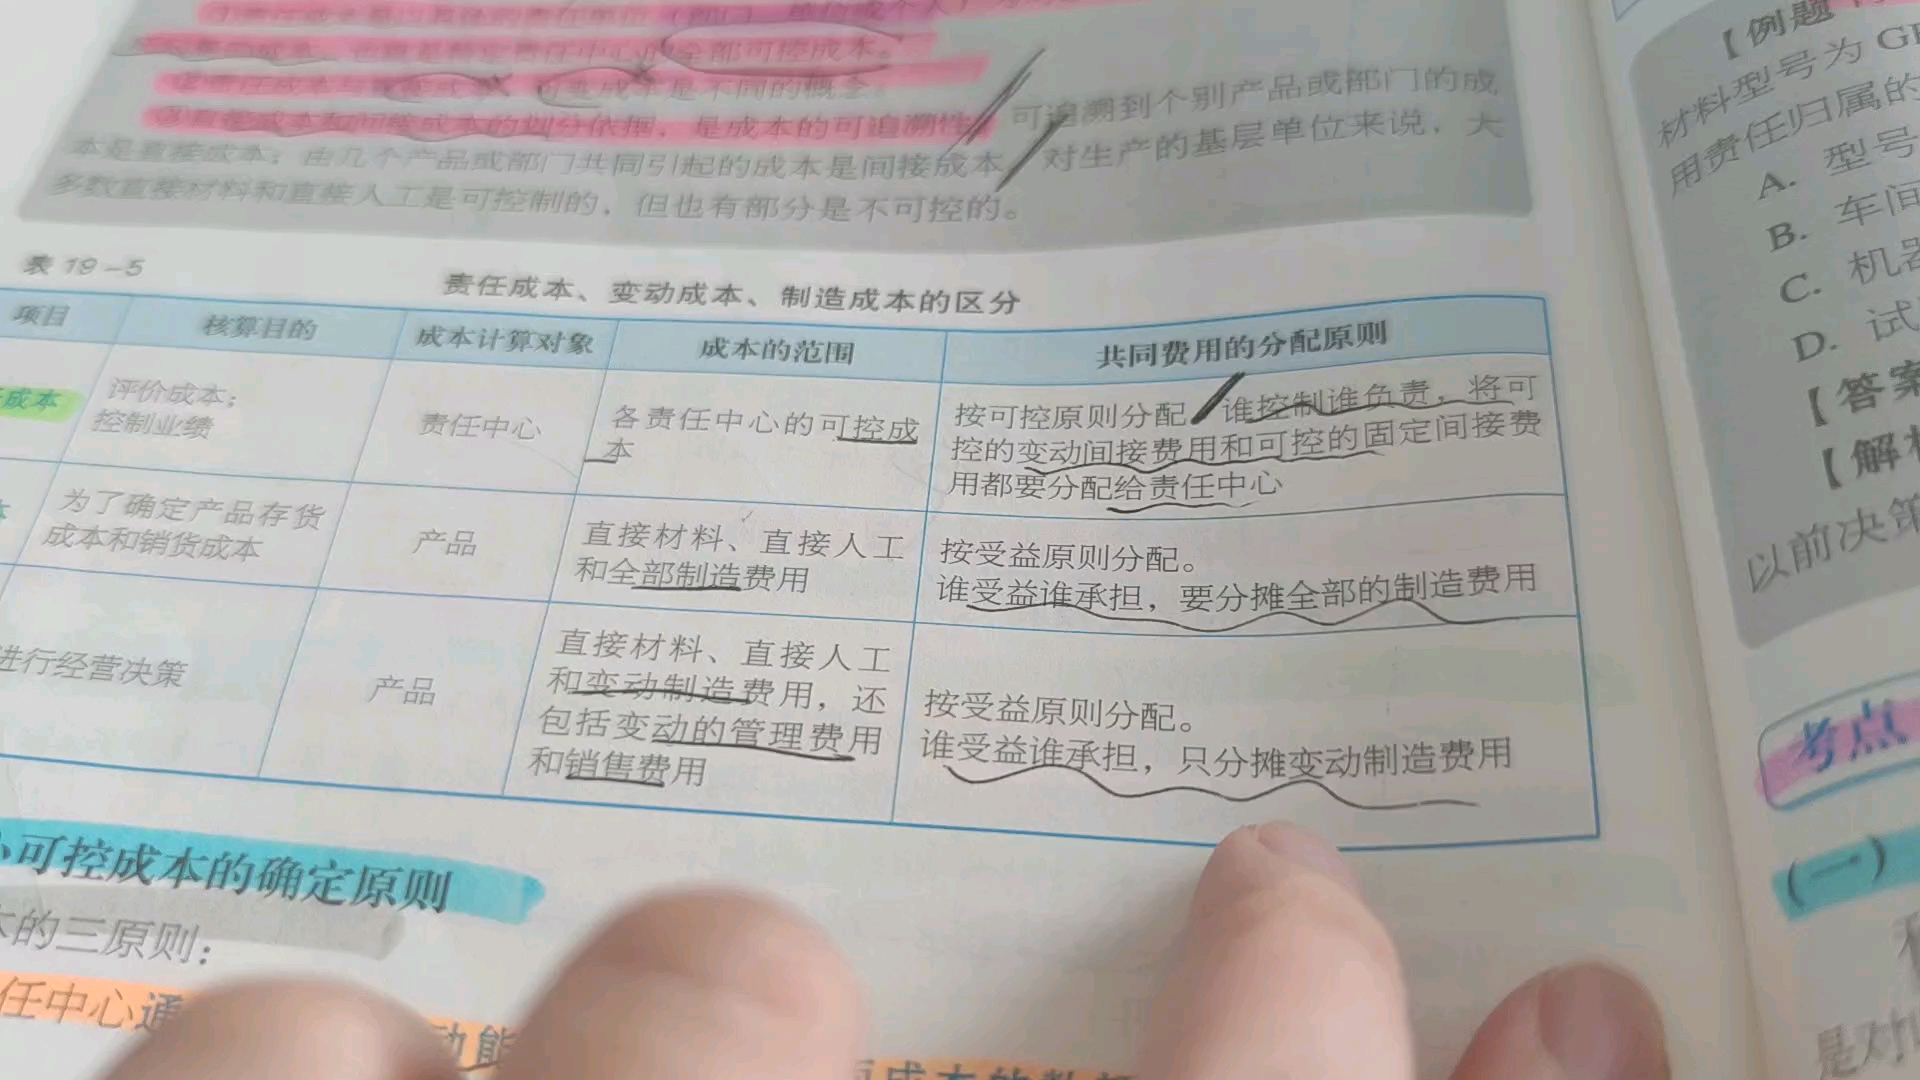 全部可控成本。
是不同的概念。
③直接成本和间接成本的划分依据，是成本的可追溯性。可追溯到个别产品或部门的成
本是直接成本；由几个产品或部门共同引起的成本是间接成本。对生产的基层单位来说，大
多数直接材料和直接人工是可控制的，但也有部分是不可控的。
表 19-5
责任成本、变动成本、制造成本的区分
项目 核算目的 成本计算对象 成本的范围 共同费用的分配原则
成本
评价成本；
控制业绩
责任中心
各责任中心的可控成
本
按可控原则分配。谁控制谁负责，将可
控的变动间接费用和可控的固定间接费
用都要分配给责任中心
为了确定产品存货
成本和销货成本
产品
直接材料、直接人工
和全部制造费用
按受益原则分配。
谁受益谁承担，要分摊全部的制造费用
进行经营决策
产品
直接材料、直接人工
和变动制造费用，还
包括变动的管理费用
和销售费用
按受益原则分配。
谁受益谁承担，只分摊变动制造费用
可控成本的确定原则
的三原则：
任中心通
【例题
材料型号为
用责任归属的
A. 型号
B. 车间
C. 机器
D. 试
【答案
【解析
以前决策
考点
（一）